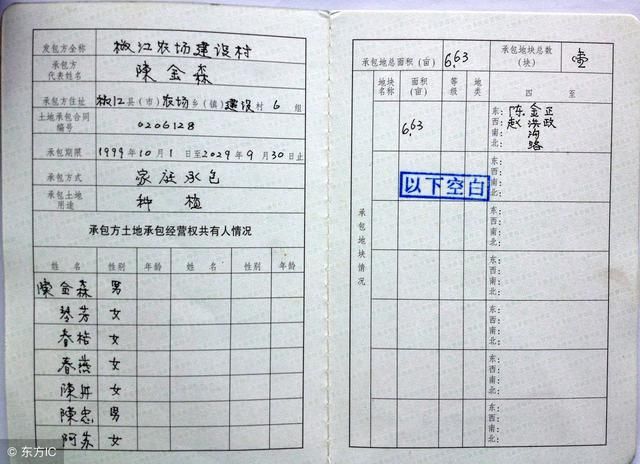 发包方全称 椒江农场建设村
承包方代表姓名 陳金森
承包方住址 椒江县(市)农场乡(镇)建设村6组
土地承包合同编号 0206128
承包期限 1999年10月1日至2029年9月30日止
承包方式 家庭承包
承包土地用途 种植
承包方土地承包经营权共有人情况
姓名 性别 年龄 姓名 性别 年龄
陳金森 男
琴芳 女
春桔 女
春燕 女
陳丹 女
陳忠 男
阿苏 女
© 东方IC
承包地总面积(亩) 6.63 承包地块总数(块) 壹
承包地块情况
地块名称 面积(亩) 等级 地类 四至
6.63
东: 陈金正
西: 赵洪政
南: 沟
北: 路
以下空白
东:
西:
南:
北:
东:
西:
南:
北:
东:
西:
南:
北:
东:
西:
南:
北:
东:
西:
南:
北: